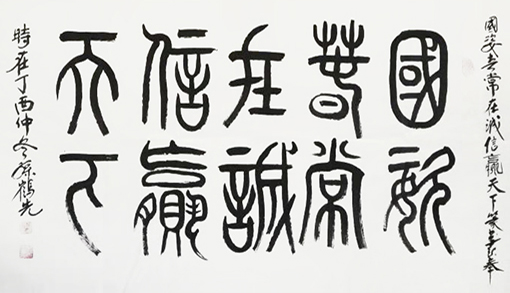 國姿春常在誠信贏天下
國姿
春常
在誠
信贏
天下
時在丁酉仲冬鶴先